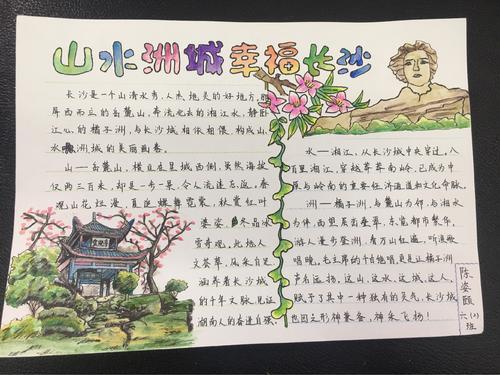 山水洲城幸福长沙
长沙是一个山清水秀,人杰地灵的好地方,
屏西而立的岳麓山,奔流北去的湘江水,静卧
江心的橘子洲,与长沙城相依相偎,构成山
水洲城的美丽画卷。
山—岳麓山,横亘在星城西侧,虽然海拔
仅两三百米,却是一步一景,令人流连忘返。春
观山花烂漫,夏
秋赏红叶
婆娑,冬品冰
雪奇观,此地人
文荟萃,风采自足
涵养着长沙城
的千年文脉,见证
湖南人的奋进自强。
水—湘江,从长沙城中央穿过。八
百里湘江,穿越莽莽南岭,已成为中
原与岭南的重要经济通道和文化命脉。
洲—橘子洲,与麓山为邻,与湘水
为伴,西望层峦叠萃,东览都市繁华。
游人漫步登洲,看万山红遍,听渔歌
唱晚,毛主席的千古绝唱更是让橘子洲
声名远扬,这山,这水,这城,这人,
赋予了其中一种独有的灵气,长沙城
也因之形神兼备,神采飞扬!
陈姿颐
六(2)
班